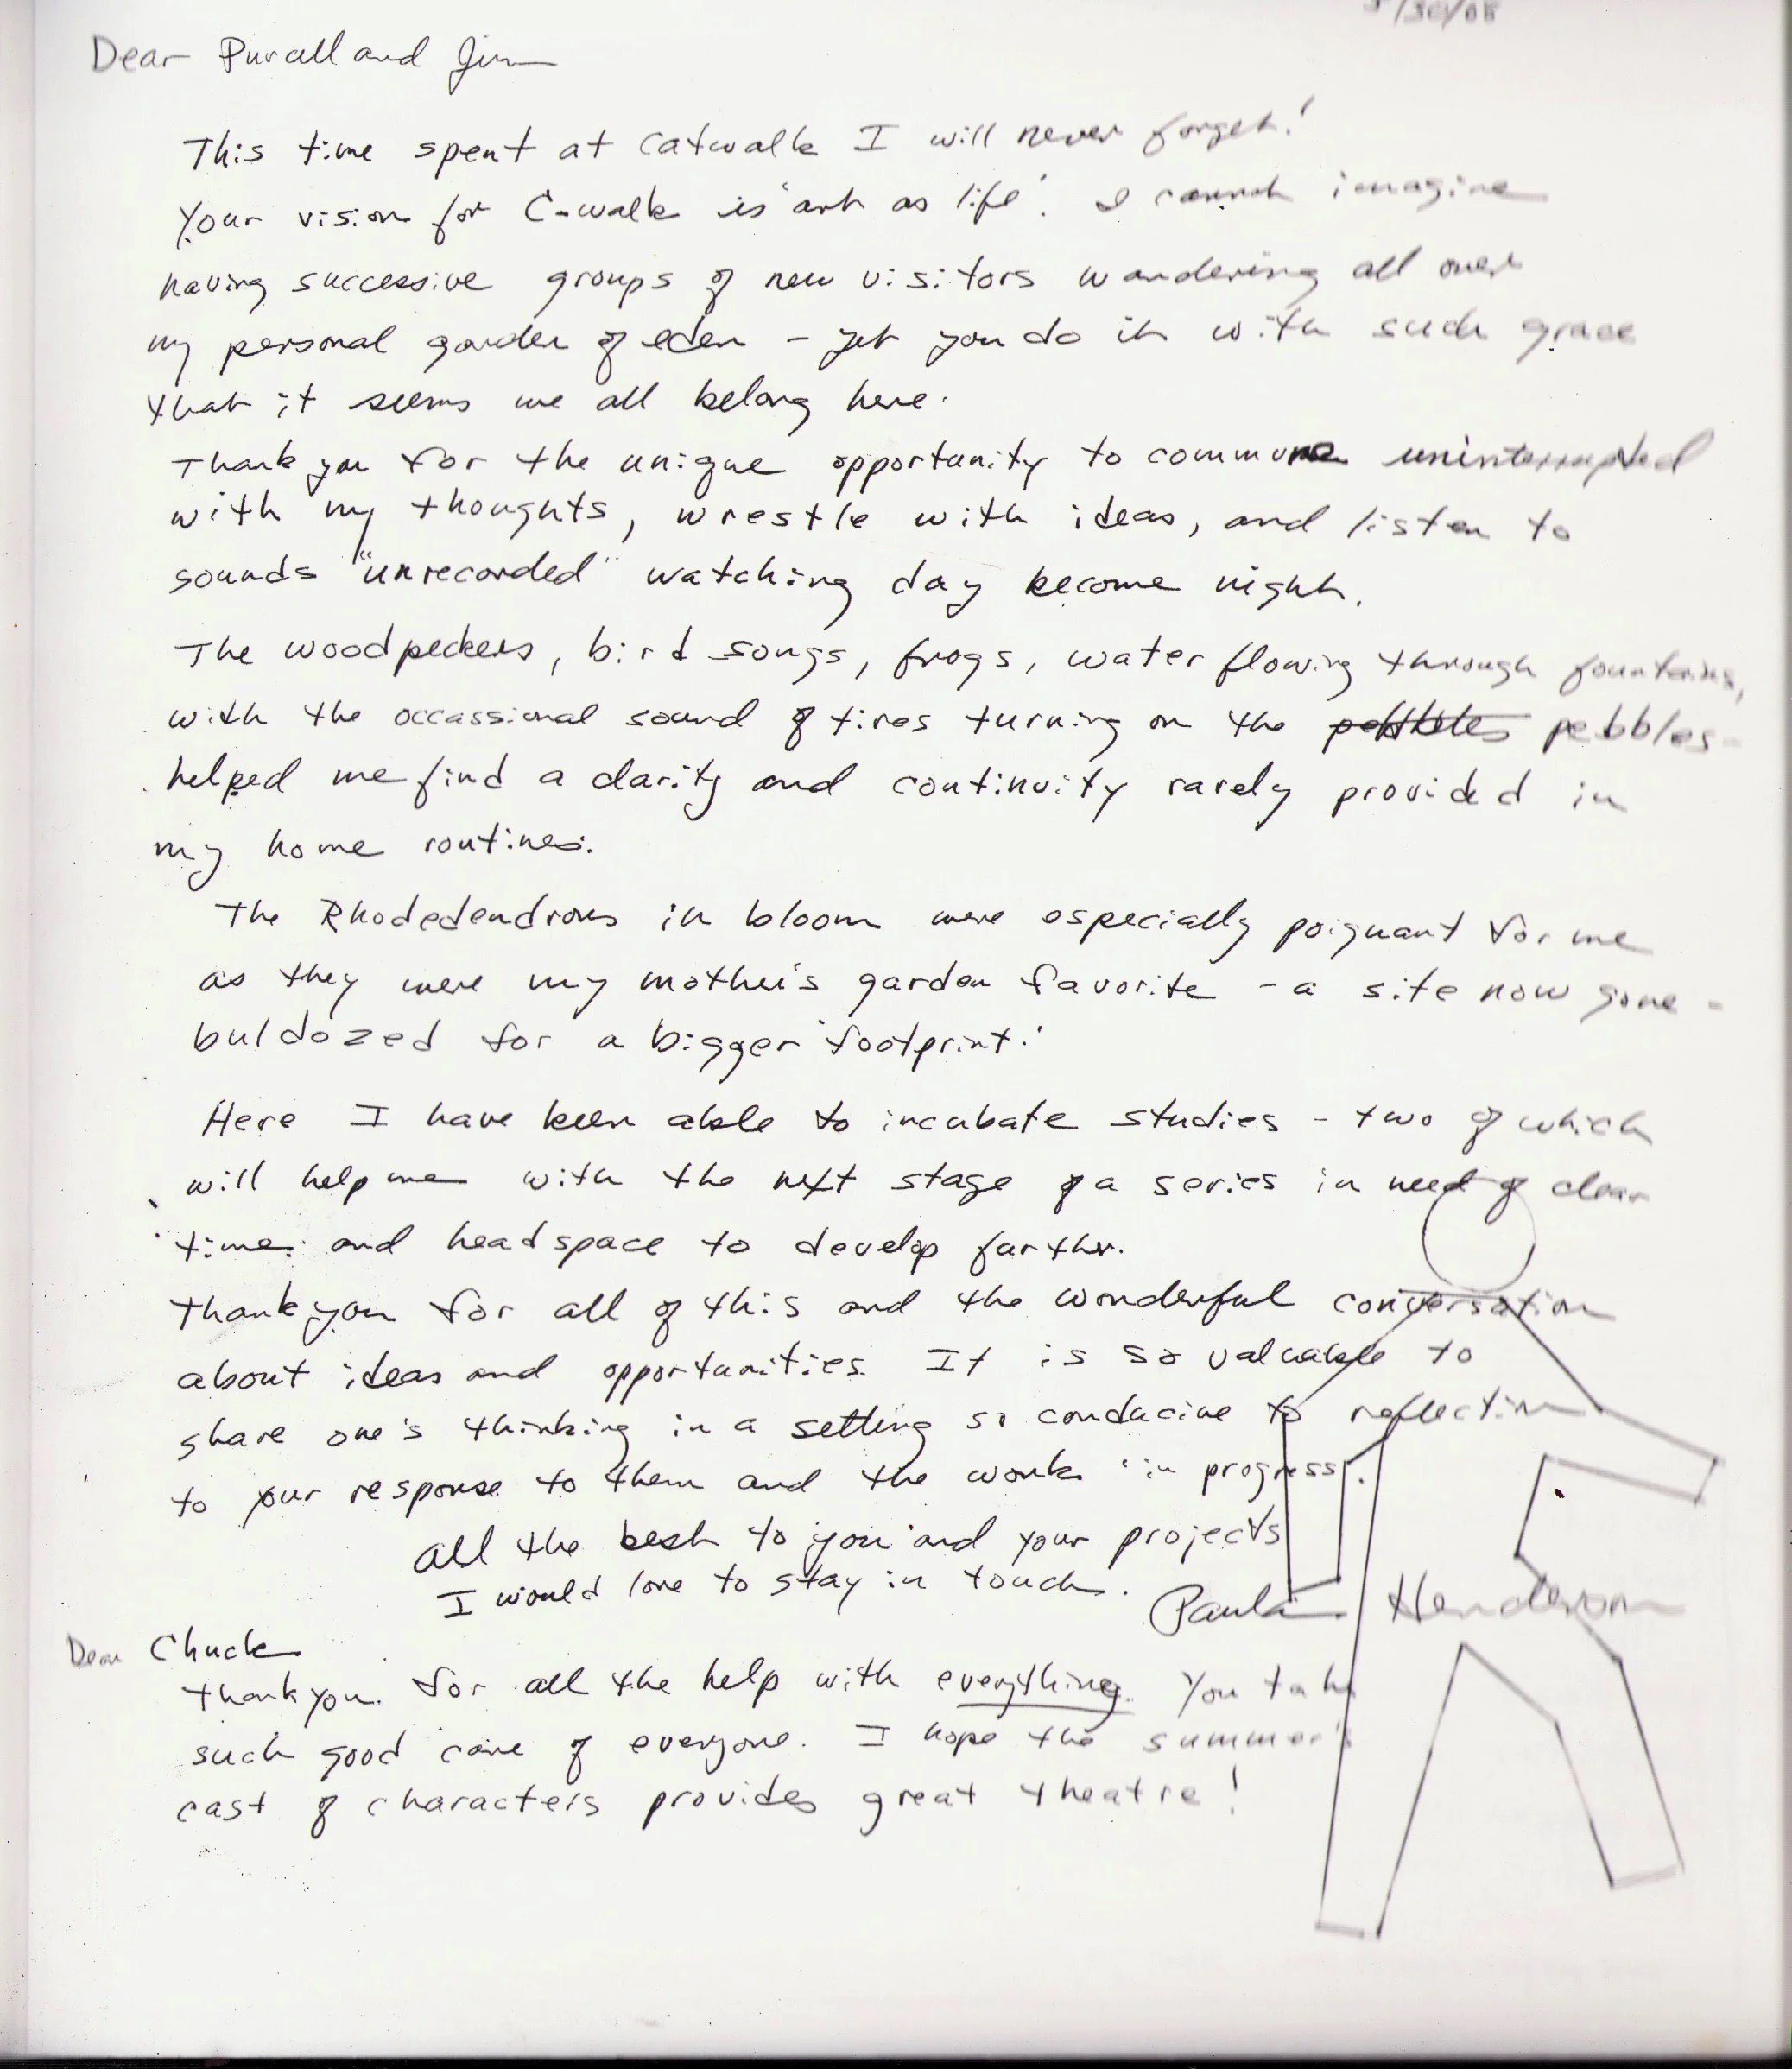 5/30/08
Dear Purcell and Jim
This time spent at Catwalk I will never forget!
Your vision for C-walk is 'art as life'. I cannot imagine
having successive groups of new visitors wandering all over
my personal garden of eden - yet you do it with such grace
that it seems we all belong here.
Thank you for the unique opportunity to commune uninterrupted
with my thoughts, wrestle with ideas, and listen to
sounds "unrecorded" watching day become night.
The woodpeckers, bird songs, frogs, water flowing through fountains,
with the occassional sound of tires turning on the pebbles -
helped me find a clarity and continuity rarely provided in
my home routines.
The Rhodedendrons in bloom were especially poignant for me
as they were my mother's garden favorite - a site now gone -
buldozed for a bigger 'footprint.'
Here I have been able to incubate studies - two of which
will help me with the next stage of a series in need of clear
time and headspace to develop further.
Thank you for all of this and the wonderful conversation
about ideas and opportunities. It is so valuable to
share one's thinking in a setting so conducive to reflection
to your response to them and the work 'in progress'.
All the best to you and your projects
I would love to stay in touch.
Paula Henderson
Dear Chuck
Thank you for all the help with everything. You take
such good care of everyone. I hope the summer's
cast of characters provides great theatre!